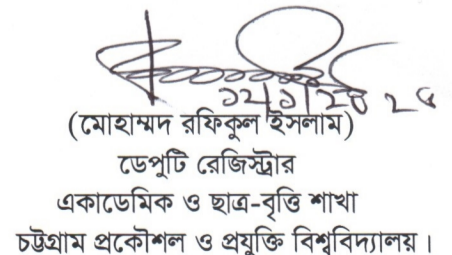 ১২/১/২০২৫
(মোহাম্মদ রফিকুল ইসলাম)
ডেপুটি রেজিস্ট্রার
একাডেমিক ও ছাত্র-বৃত্তি শাখা
চট্টগ্রাম প্রকৌশল ও প্রযুক্তি বিশ্ববিদ্যালয়।